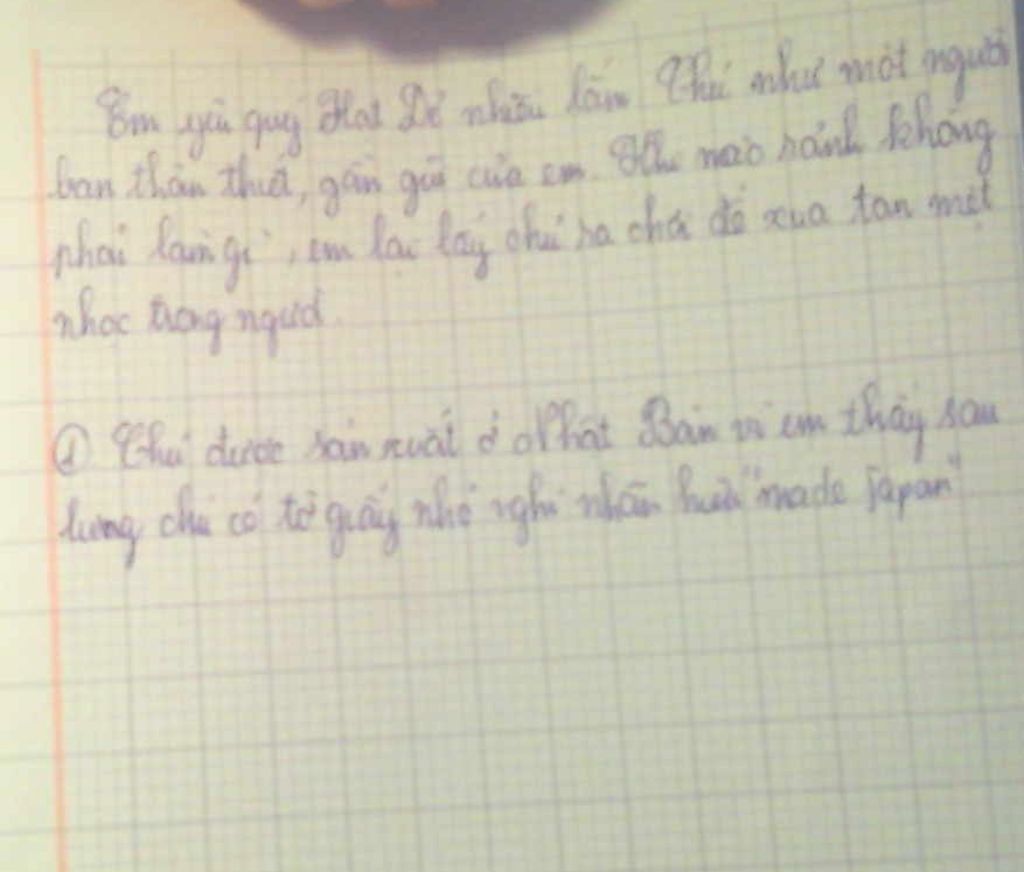 Em yêu quý Hạt Dẻ nhiều lắm. Chú như một người
bạn thân thiết, gần gũi của em. Khi nào rảnh không
phải làm gì, em lại lấy chú ra chơi để xua tan mệt
nhọc trong người.
① Chú được sản xuất ở Nhật Bản vì em thấy sau
lưng chú có tờ giấy nhỏ nghi nhãn hiệu "made japan"